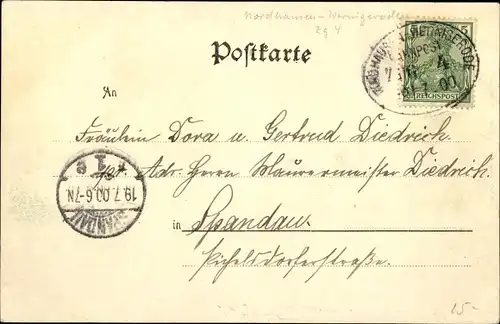 Nordhausen-Wernigerode
Zg 4
Postkarte
NORDHAUSEN-WERNIGERODE
BAHNPOST
5
REICHSPOST
An
Fräulein Dora u. Gertrud Diedrich.
Adr. Herrn Maurermeister Diedrich.
19.7.00.6-7N.
SPANDAU
in Spandau.
Pichelsdorferstraße.
15.-